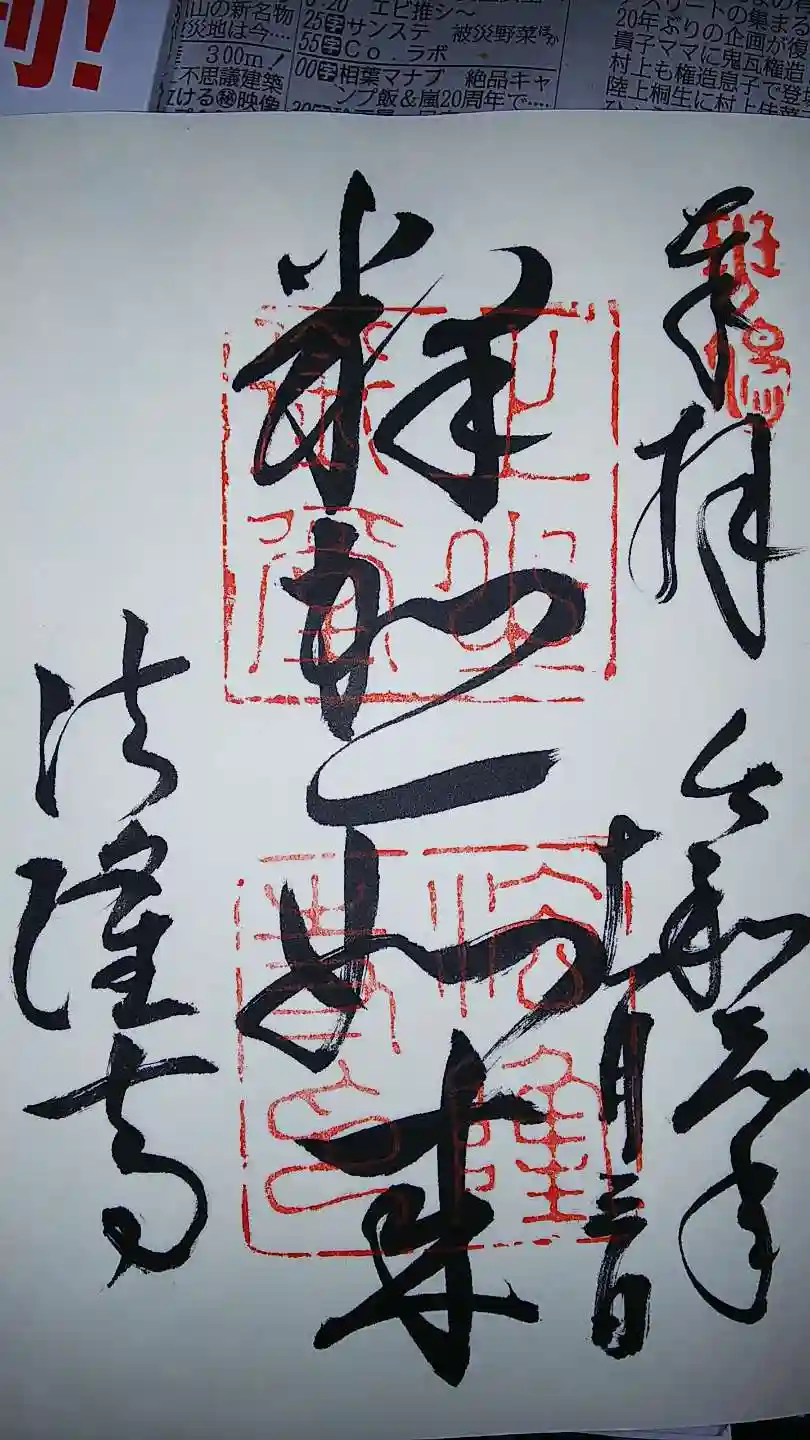 山の新名物
災地は今‥‥
300m!
不思議建築
ける㊙映像
エビ推シ～
25 字 サンステ 被災野菜ほか
55 字 Co.ラボ
00 字 相葉マナブ 絶品キャ
ンプ飯&嵐20周年で‥‥
スリートの集まる
20年ぶりの企画が復
貴子ママに鬼瓦権造
村上も権造息子で登場
陸上桐生に村上佳菜
斑鳩
奉拝
令和元年
十月三日
釋迦如来
法隆寺